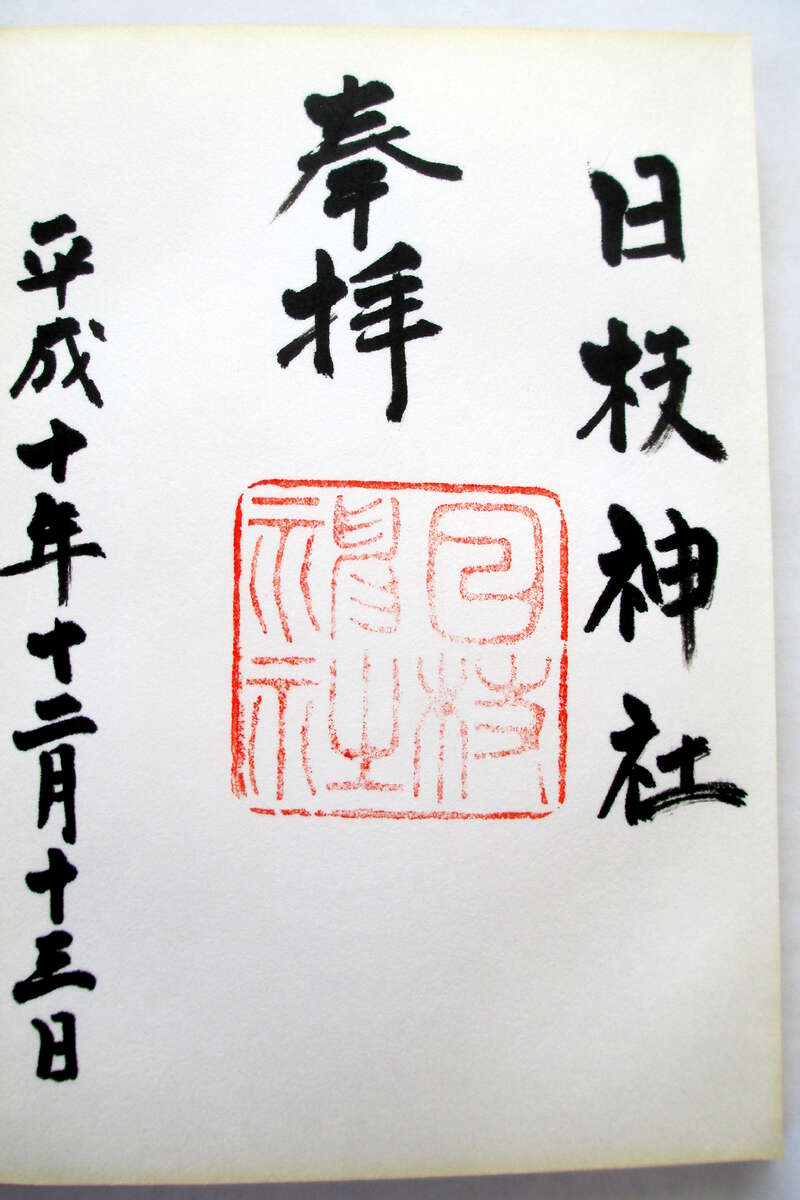 日枝神社
奉拝
日枝
神社
平成十年十二月十三日